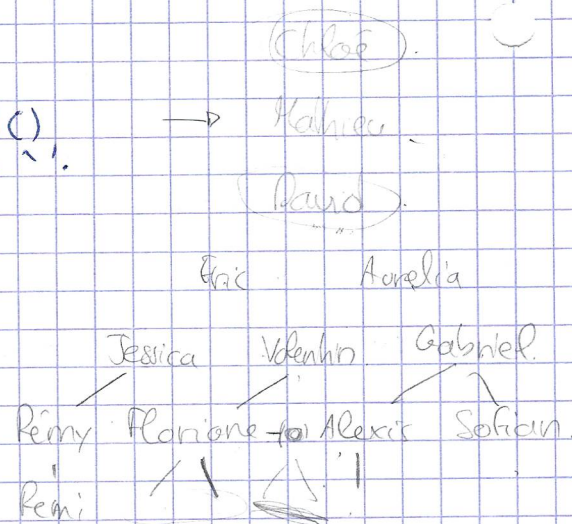 Chloé
Mathieu
David
Eric Aurelia
Jessica Valentin Gabriel
Rémy Floriane toi Alexis Sofian
Remi